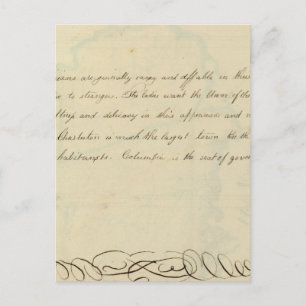 are generally easy and affable in their
to strangers. The ladies want the bloom of the
and delicacy in their appearance and
Charleston is much the largest town
habitants. Columbia is the seat of gover